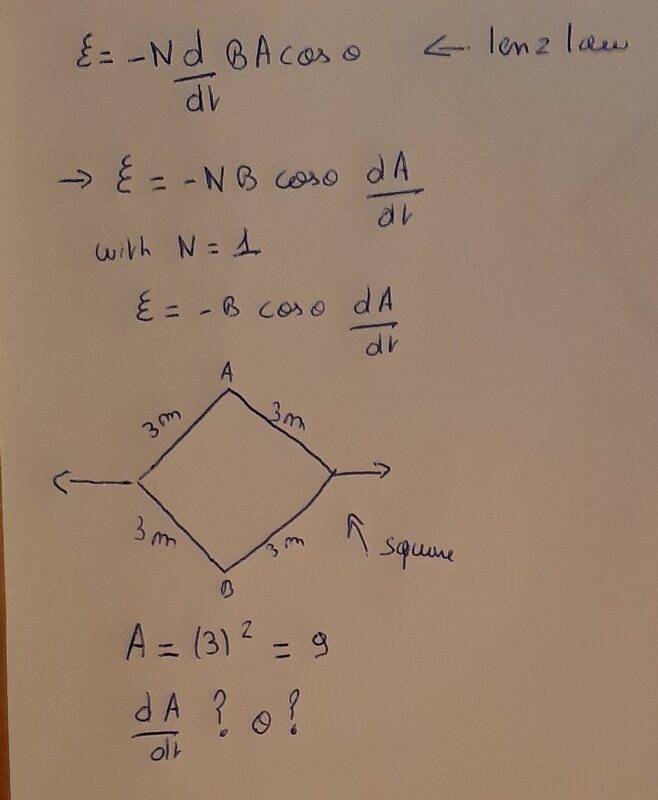 ξ = -N d/dt BA cos θ ← lenz law
→ ξ = -NB cos θ dA/dt
with N = 1
ξ = -B cos θ dA/dt
A
3m 3m
3m 3m
square
B
A = (3)² = 9
dA/dt ? θ ?